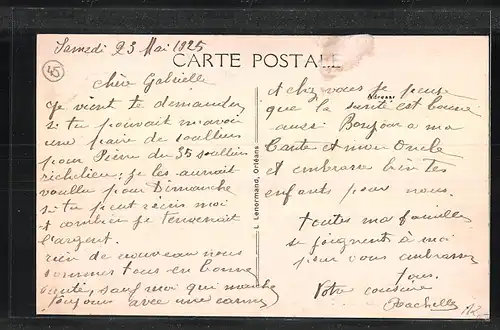 Samedi 23 Mai 1925
45
CARTE POSTALE
chère Gabrielle
Je vient te demander
si tu pouvait m'avoir
une paire de soulliers
pour Peirre du 35 soulliers
richelieu; je les aurait
voullu pour Dimanche
si tu peut récris moi
et combien je t'enverrait
l'argent.
rien de nouveau nous
sommes tous en bonne
santé, sauf moi qui marche
toujour avec une canne
L. Lenormand, Orléans
et chez vous je pense
que la santé est bonne
aussi Bonjour a ma
tante et mon Oncle
et embrasse bien tes
enfants pour nous.
toutes ma famille
se joignent à moi
pour vous embrasser
tous.
Votre cousine
Rachelle